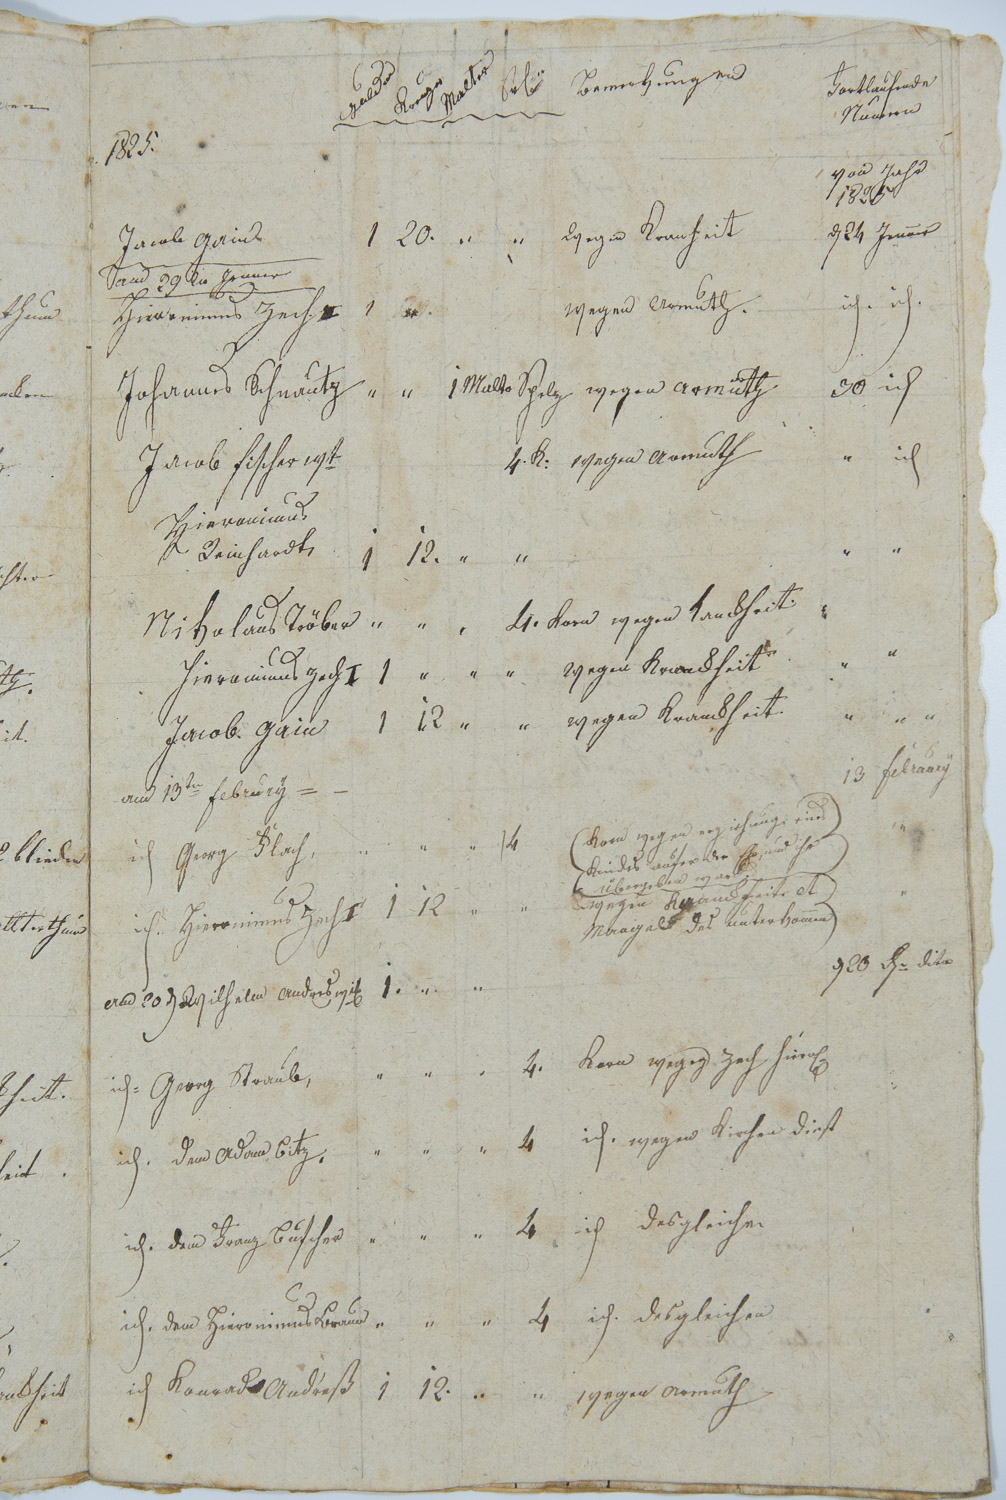 Gulden Kreuzer Malter Bemerkungen Fortlaufende
Numern
1825.
von Jahr
1825
Jacob Gain 1 20. " " wegen Krankheit d 24 Jenner
and 29 Jenner
Hieronimus Zech I 1 wegen Armuth. id. id.
Johannes Schnautz " " 1 Malter Spelz wegen Armuth 30 id
Jacob Fischer wt 4. K. wegen Armuth " id
Hieronimus
Reinhardt 1 12. " " " "
Nikolaus Tröber " " , 4. Korn wegen Kranckheit.
Hieronimus Zech I 1 " " " wegen Kranckheit " "
Jacob. Gain 1 12 " " wegen Kranckheit. " " "
am 13ten Februry = - 13 Februry
id Georg Flach, " " " 4 Korn wegen erziehung eines
Kindes außer der und ihr
übergeben ward
id. Hieronimus Zech I 1 12 " " wegen Krankheit et "
Mangels des unterkommen
and 20 d Wilhelm Andres wit 1. " " d 20 dito
id= Georg Straub, " " " 4. Korn wegen Zech
id. dem Adam Bitz. " " " 4 id. wegen Kirchen dinst
id. dem Franz Buscher " " " 4 id desgleichen
id. dem Hieronimus Braun " " " 4 id. desgleichen
id Konrad Andreß 1 12. " " wegen Armuth